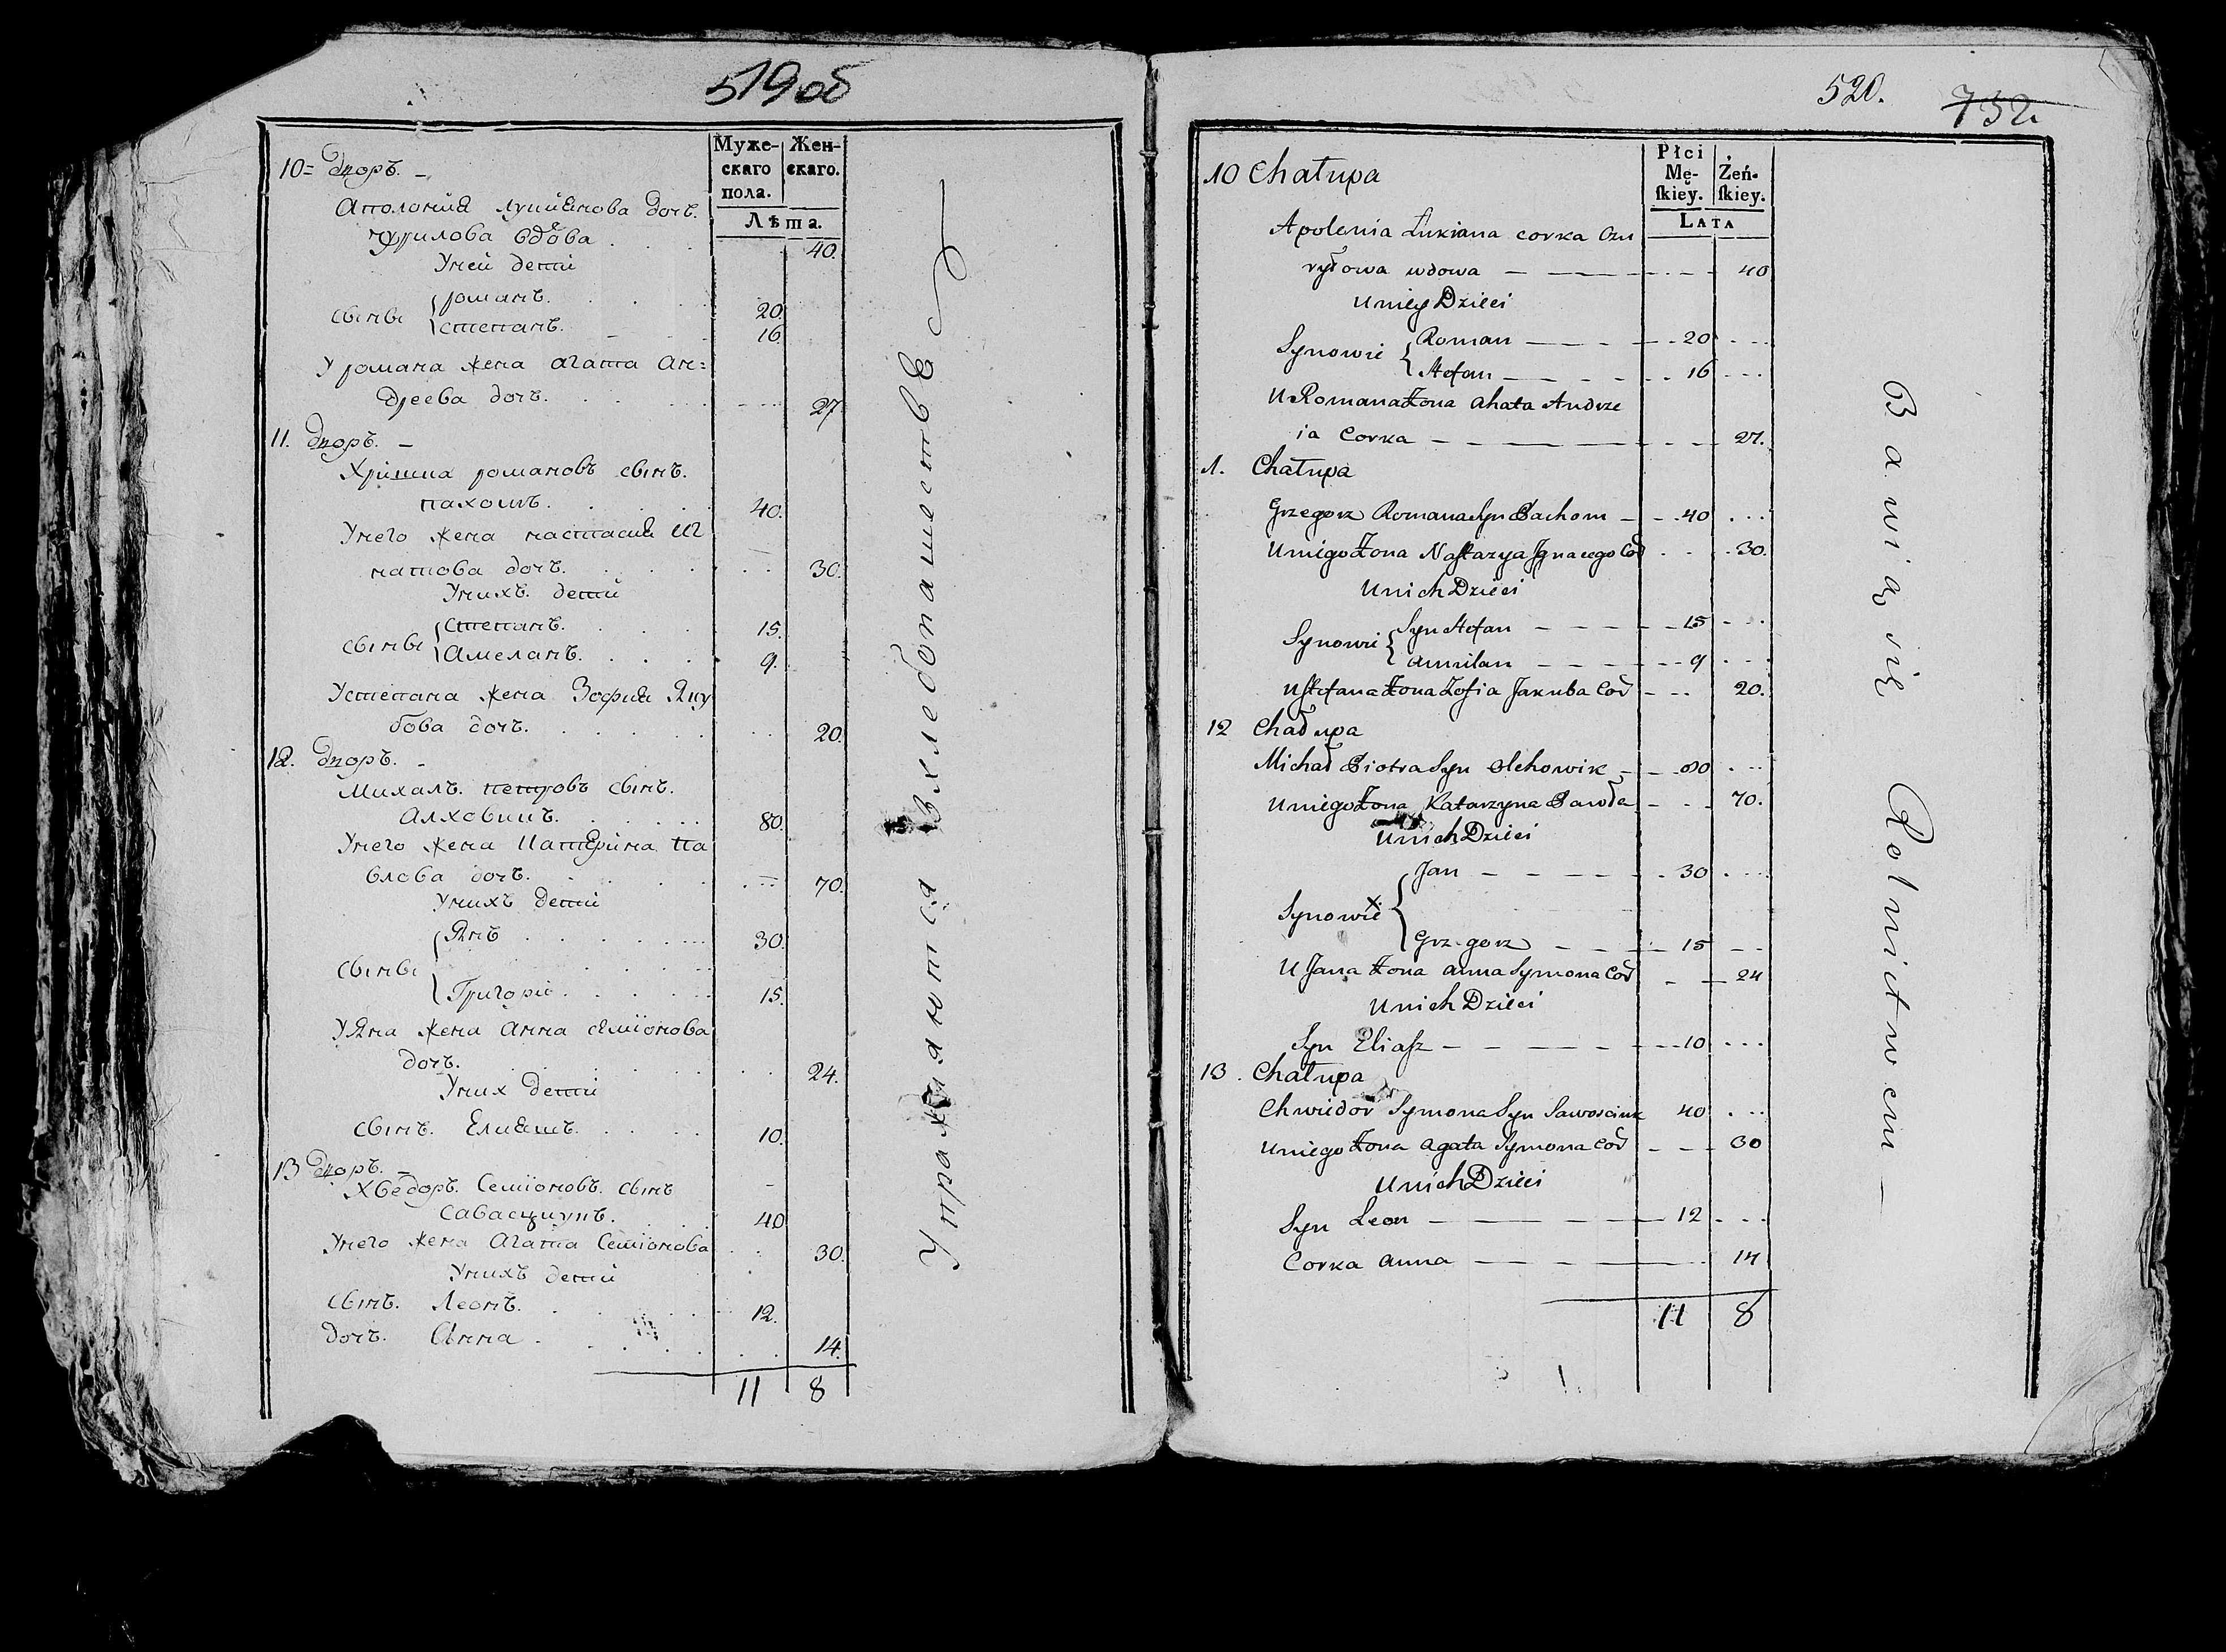 519 об
Муже-
скаго
пола.
Жен-
скаго.
Лѣта.
10 = Дворъ. –
Аполонія лукиянова дочъ.
чурилова вдова . . . 40.
Унеи дети
романъ. 20.
сыны
степанъ. 16.
У романа жена агата ан=
дреева дочъ. 27.
11. Дворъ. –
Хришка романовъ сынъ.
пахомъ. 40.
Унего жена настасия иг
натова дочъ. 30.
Унихъ дети
степанъ. 15.
сыны
Амеланъ. 9.
Устепана жена Зофия Яку
бова дочъ. 20.
12. Дворъ. –
Михалъ. петровъ сынъ.
Алховикъ. 80.
Унего жена Катерина па
влова дочъ. 70.
Унихъ дети
Янъ 30.
сыны
Григорiй 15.
Уяна жена Анна семионова
дочъ. 24.
Уних дети
сынъ. Елияшъ. 10.
13 Дворъ. –
Хведоръ. Семионовъ. сынъ
савасцюкъ. 40
Унего жена Агата Семионова 30.
Унихъ дети
сынъ. Леонъ. 12.
дочъ. Анна. 14.
11 8
Упражняются вхлебопашестве
520.
732.
Płci
Mę-
skiey.
Żeń-
skiey.
LATA
10 Chałupa
Apolenia Łukiana corka Czu
ryłowa wdowa — 40
Uniey Dzieci
Roman — 20
Synowie
Stefan — 16
U Romana Żona ahata Andrze
ia Corka — 27.
1. Chałupa
Grzegorz Romana Syn Pachom — 40
Uniego Żona Nastazya Jgnacego Cor 30.
Unich Dzieci
Syn Stefan — 15
Synowie
amilan — 9
U Stefana Żona Zofia Jakuba Cor — 20.
12 Chałupa
Michał Piotra Syn Olchowik — 80
Uniego Żona Katarzyna Pawła — 70.
Unich Dzieci
Jan — 30
Synowie
Grzegorz — 15
U Jana Żona anna Symona Cor — 24
Unich Dzieci
Syn Eliasz — 10
13. Chałupa
Chwiedor Symona Syn Sawosciuk 40
Uniego Żona agata Symona Cor — 30
Unich Dzieci
Syn Leon — 12
Corka anna — 14
11 8
Bawią się Rolnictwem —